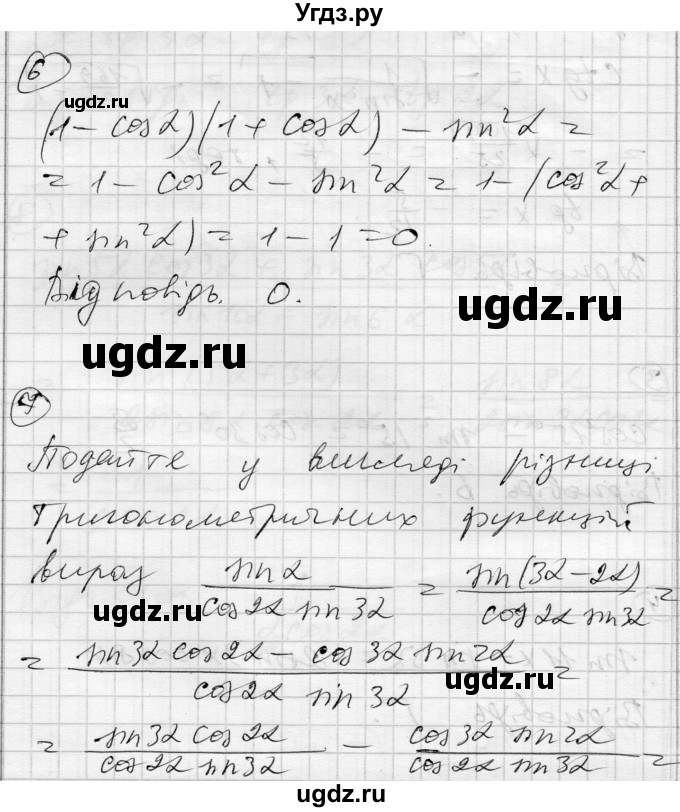 Угдз.ру
6
ugdz.ru
(1 - cos α)(1 + cos α) - sin²α =
= 1 - cos²α - sin²α = 1 - (cos²α +
+ sin²α) = 1 - 1 = 0.
Відповідь. 0.
ugdz.ru
ugdz.ru
7
Подайте у вигляді різниці
тригонометричних функцій
вираз sin α / cos 2α sin 3α = sin(3α - 2α) / cos 2α sin 3α =
ugdz.ru
= sin 3α cos 2α - cos 3α sin 2α / cos 2α sin 3α =
ugdz.ru
= sin 3α cos 2α / cos 2α sin 3α - cos 3α sin 2α / cos 2α sin 3α =
ugdz.ru